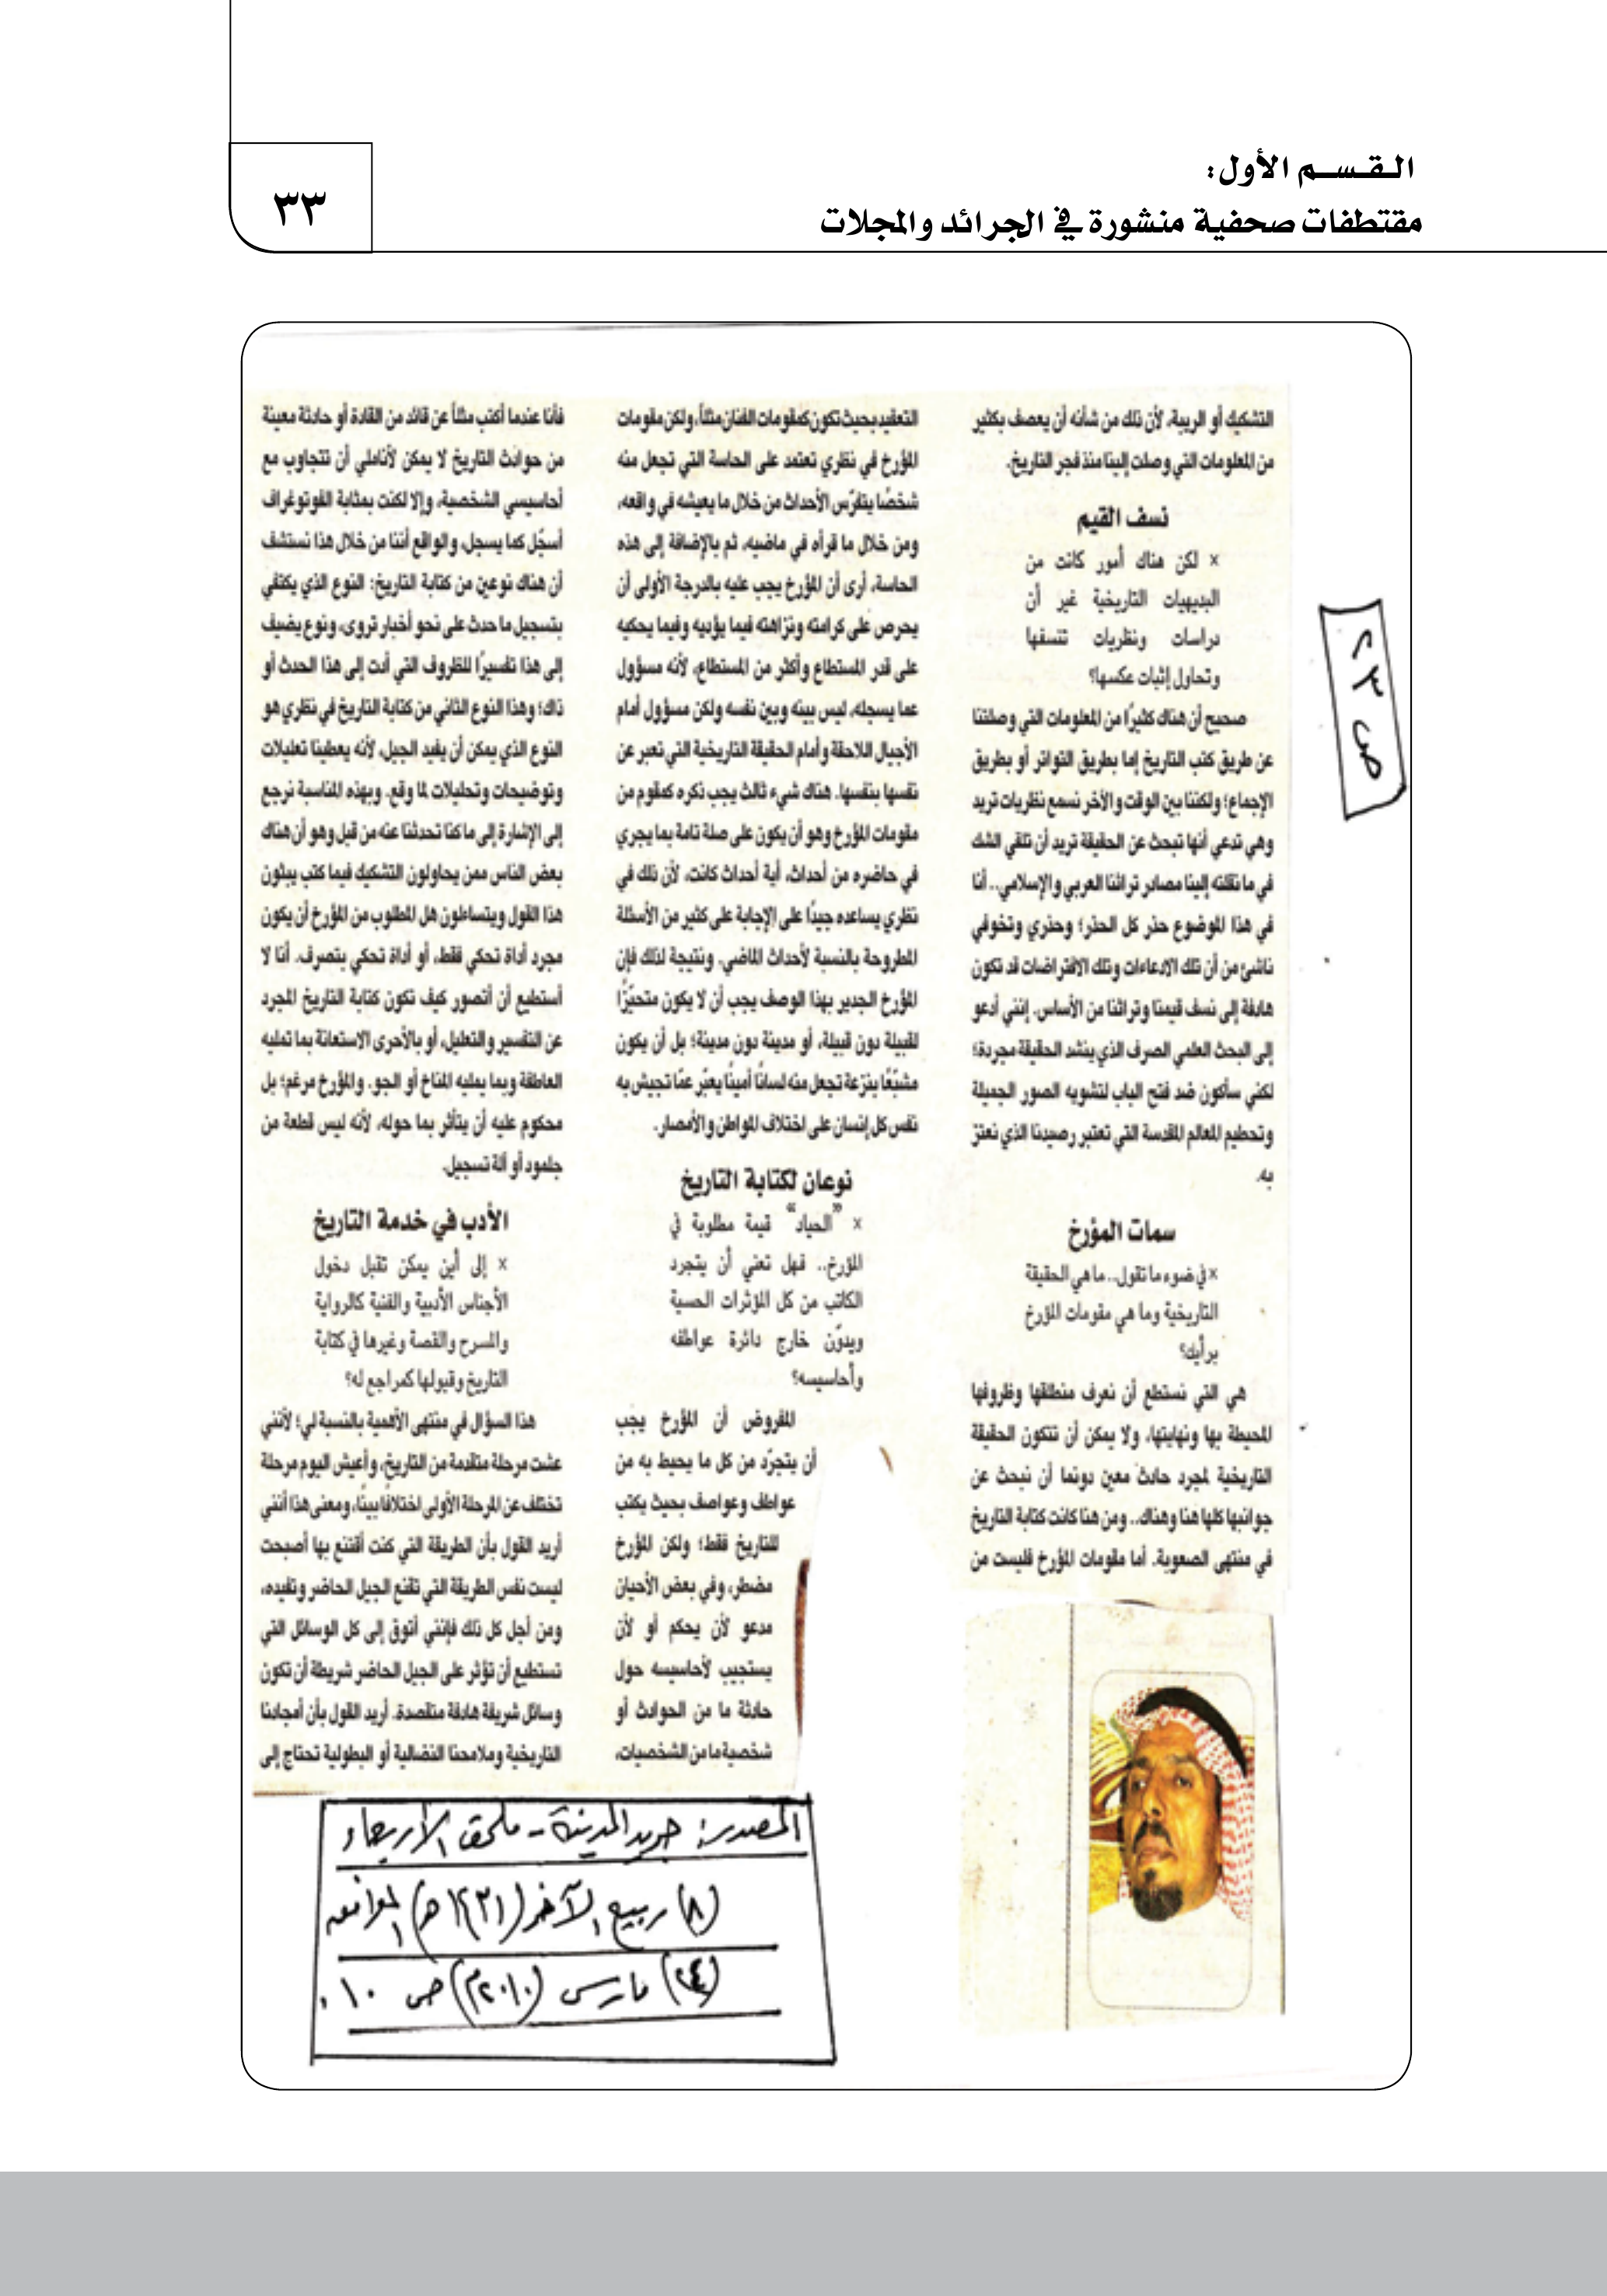 القسم الأول:
مقتطفات صحفية منشورة في الجرائد والمجلات
٣٣
التشكيك أو الريبة، لأن ذلك من شأنه أن يعصف بكثير
من المعلومات التي وصلت إلينا منذ فجر التاريخ.
نسف القيم
× لكن هناك أمور كانت من
البديهيات التاريخية غير أن
دراسات ونظريات تنسفها
وتحاول إثبات عكسها؟
صحيح أن هناك كثيرًا من المعلومات التي وصلتنا
عن طريق كتب التاريخ إما بطريق التواتر أو بطريق
الإجماع؛ ولكننا بين الوقت والآخر نسمع نظريات تريد
وهي تدعي أنها تبحث عن الحقيقة تريد أن تلقي الشك
في ما نقلته إلينا مصادر تراثنا العربي والإسلامي.. أنا
في هذا الموضوع حذر كل الحذر؛ وحذري وتخوفي
ناشئ من أن تلك الادعاءات وتلك الافتراضات قد تكون
هادفة إلى نسف قيمنا وتراثنا من الأساس. إنني أدعو
إلى البحث العلمي الصرف الذي ينشد الحقيقة مجردة؛
لكني سأكون ضد فتح الباب لتشويه الصور الجميلة
وتحطيم المعالم المقدسة التي تعتبر رصيدنا الذي نعتز
به.
سمات المؤرخ
× في ضوء ما تقول.. ما هي الحقيقة
التاريخية وما هي مقومات المؤرخ
برأيك؟
هي التي نستطع أن نعرف منطلقها وظروفها
المحيطة بها ونهايتها، ولا يمكن أن تتكون الحقيقة
التاريخية لمجرد حادث معين دونما أن نبحث عن
جوانبها كلها هنا وهناك.. ومن هنا كانت كتابة التاريخ
في منتهى الصعوبة. أما مقومات المؤرخ فليست من
التعقيد بحيث تكون كمقومات الفنان مثلاً، ولكن مقومات
المؤرخ في نظري تعتمد على الحاسة التي تجعل منه
شخصًا يتفرّس الأحداث من خلال ما يعيشه في واقعه،
ومن خلال ما قرأه في ماضيه، ثم بالإضافة إلى هذه
الحاسة، أرى أن المؤرخ يجب عليه بالدرجة الأولى أن
يحرص على كرامته ونزاهته فيما يؤديه وفيما يحكيه
على قدر المستطاع وأكثر من المستطاع، لأنه مسؤول
عما يسجله، ليس بينه وبين نفسه ولكن مسؤول أمام
الأجيال اللاحقة وأمام الحقيقة التاريخية التي تعبر عن
نفسها بنفسها. هناك شيء ثالث يجب ذكره كمقوم من
مقومات المؤرخ وهو أن يكون على صلة تامة بما يجري
في حاضره من أحداث، أية أحداث كانت، لأن ذلك في
نظري يساعده جيدًا على الإجابة على كثير من الأسئلة
المطروحة بالنسبة لأحداث الماضي. ونتيجة لذلك فإن
المؤرخ الجدير بهذا الوصف يجب أن لا يكون متحيّزًا
لقبيلة دون قبيلة، أو مدينة دون مدينة؛ بل أن يكون
مشبّعًا بنزعة تجعل منه لسانًا أمينًا يعبّر عمّا تجيش به
نفس كل إنسان على اختلاف المواطن والأمصار.
نوعان لكتابة التاريخ
× "الحياد" قيمة مطلوبة في
المؤرخ.. فهل تعني أن يتجرد
الكاتب من كل المؤثرات الحسية
ويدوّن خارج دائرة عواطفه
وأحاسيسه؟
المفروض أن المؤرخ يجب
أن يتجرّد من كل ما يحيط به من
عواطف وعواصف بحيث يكتب
للتاريخ فقط؛ ولكن المؤرخ
مضطر، وفي بعض الأحيان
مدعو لأن يحكم أو لأن
يستجيب لأحاسيسه حول
حادثة ما من الحوادث أو
شخصية ما من الشخصيات،
فأنا عندما أكتب مثلاً عن قائد من القادة أو حادثة معينة
من حوادث التاريخ لا يمكن لأناملي أن تتجاوب مع
أحاسيسي الشخصية، وإلا لكنت بمثابة الفوتوغراف
أسجّل كما يسجل، والواقع أننا من خلال هذا نستشف
أن هناك نوعين من كتابة التاريخ: النوع الذي يكتفي
بتسجيل ما حدث على نحو أخبار تروى، ونوع يضيف
إلى هذا تفسيرًا للظروف التي أدت إلى هذا الحدث أو
ذاك؛ وهذا النوع الثاني من كتابة التاريخ في نظري هو
النوع الذي يمكن أن يفيد الجيل، لأنه يعطينا تعليلات
وتوضيحات وتحليلات لما وقع. وبهذه المناسبة نرجع
إلى الإشارة إلى ما كنا تحدثنا عنه من قبل وهو أن هناك
بعض الناس ممن يحاولون التشكيك فيما كتب يبثون
هذا القول ويتساءلون هل المطلوب من المؤرخ أن يكون
مجرد أداة تحكي فقط، أو أداة تحكي بتصرف. أنا لا
أستطيع أن أتصور كيف تكون كتابة التاريخ المجرد
عن التفسير والتعليل، أو بالأحرى الاستعانة بما تمليه
العاطفة وبما يمليه المناخ أو الجو. والمؤرخ مرغم؛ بل
محكوم عليه أن يتأثر بما حوله، لأنه ليس قطعة من
جلمود أو آلة تسجيل.
الأدب في خدمة التاريخ
× إلى أين يمكن تقبل دخول
الأجناس الأدبية والفنية كالرواية
والمسرح والقصة وغيرها في كتابة
التاريخ وقبولها كمراجع له؟
هذا السؤال في منتهى الأهمية بالنسبة لي؛ لأنني
عشت مرحلة متقدمة من التاريخ، وأعيش اليوم مرحلة
تختلف عن المرحلة الأولى اختلافًا بينًا، ومعنى هذا أنني
أريد القول بأن الطريقة التي كنت أقتنع بها أصبحت
ليست نفس الطريقة التي تقنع الجيل الحاضر وتفيده،
ومن أجل كل ذلك فإنني أتوق إلى كل الوسائل التي
تستطيع أن تؤثر على الجيل الحاضر شريطة أن تكون
وسائل شريفة هادفة متقصدة. أريد القول بأن أمجادنا
التاريخية وملامحنا النضالية أو البطولية تحتاج إلى
ص ٢٣
المصدر: جريد المدينة - ملحق الأربعاء
(٨) ربيع الآخر (١٤٣١هـ) الموافق
(٢٤) مارس (٢٠١٠م) ص ١٠.